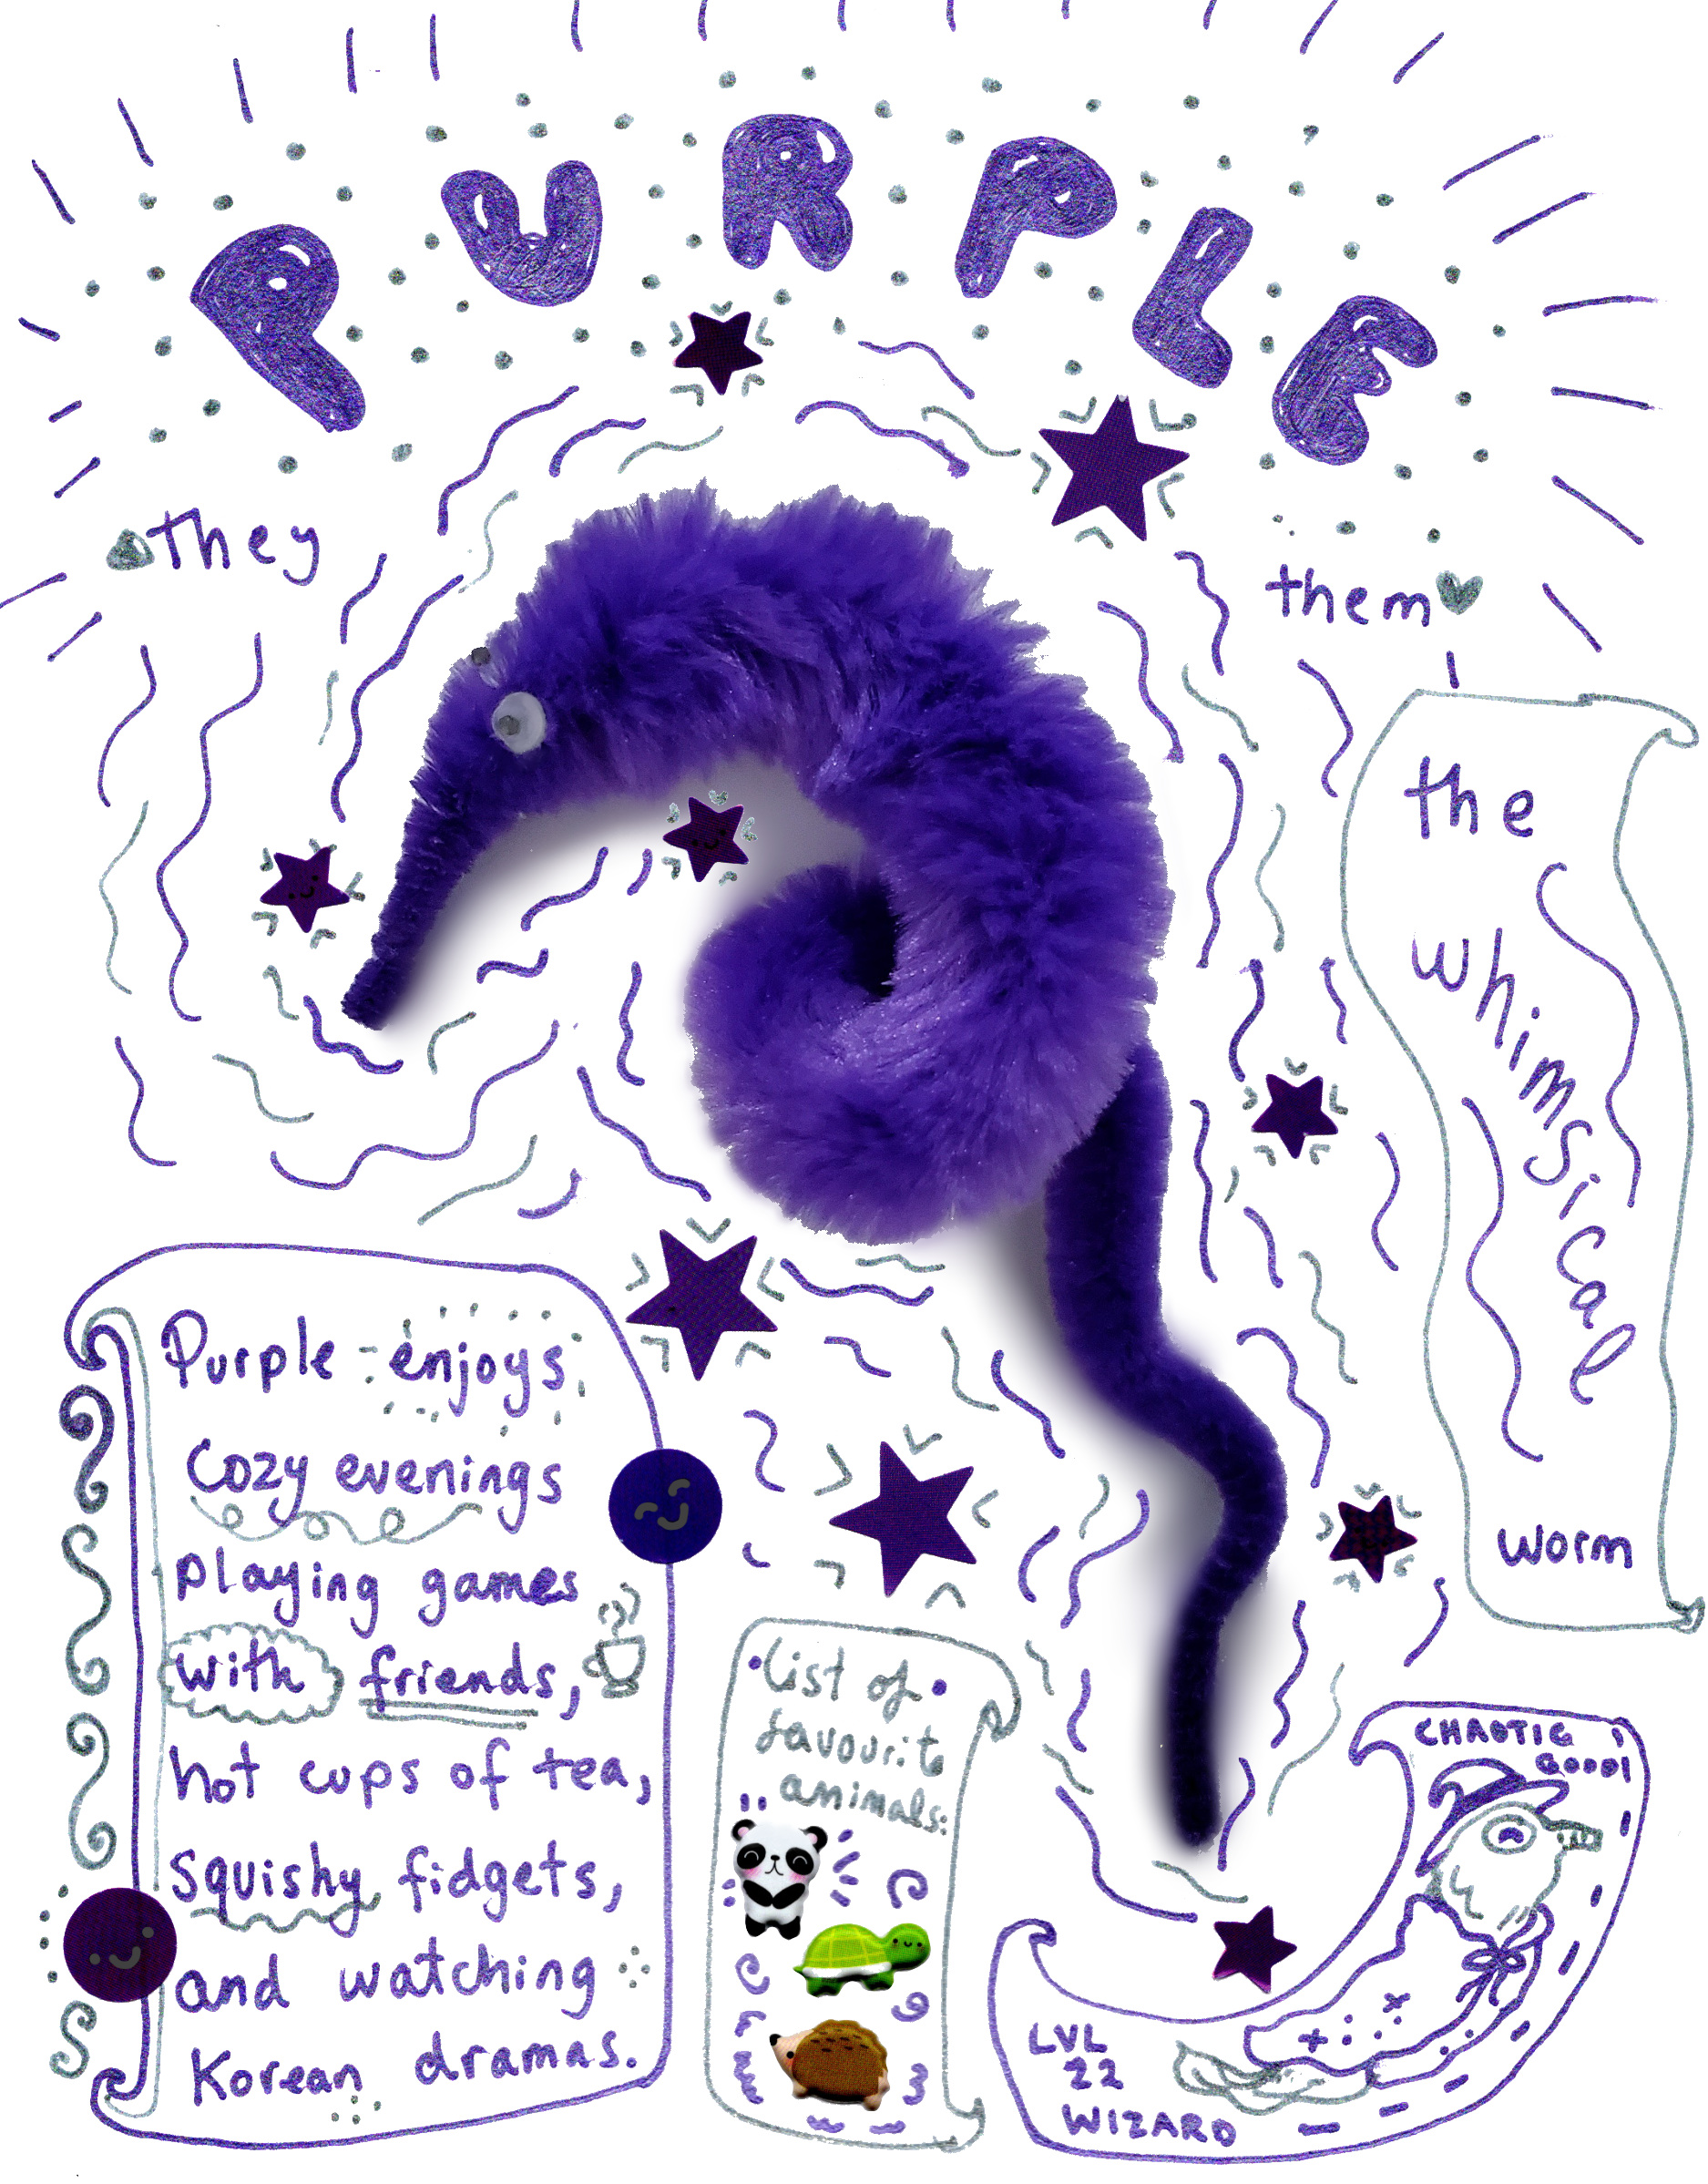 PURPLE
they
them
the
whimsical
worm
Purple enjoys
cozy evenings
playing games
with friends,
hot cups of tea,
squishy fidgets,
and watching
Korean dramas.
List of
favourite
animals:
CHAOTIC
GOOD
LVL
22
WIZARD